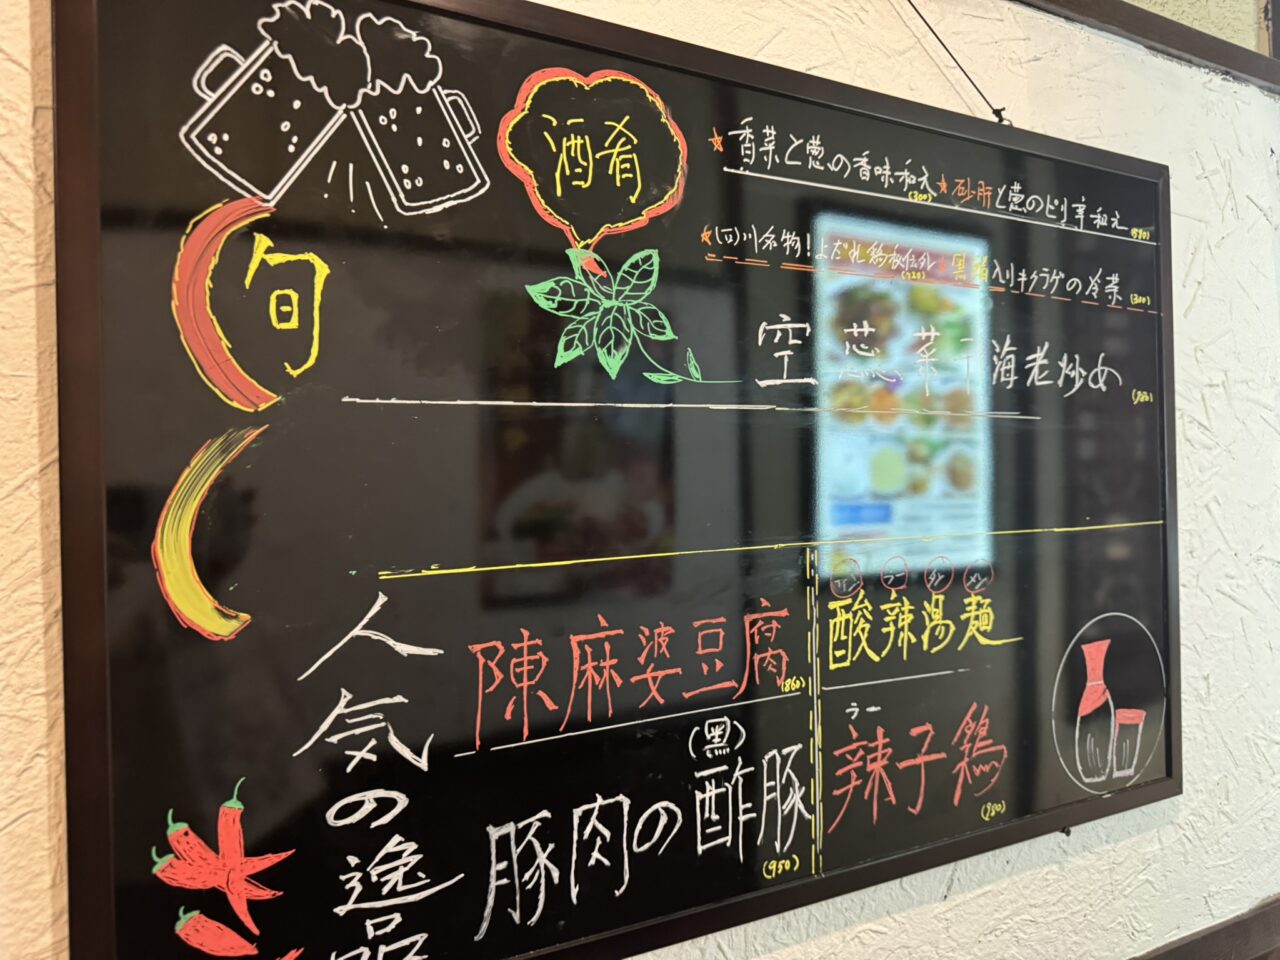 酒肴
★香菜と葱の香味和え(300)★砂肝と葱のピリ辛和え(580)
★(四)川名物！よだれ鶏秘伝外(720)★黒酢入りキクラゲの冷菜(300)
旬
空芯菜干海老炒め(980)
人気の逸品
陳麻婆豆腐(860)
豚肉の(黒)酢豚(950)
サン ラー タン メン
酸辣湯麺
ラー
辣子鶏(980)